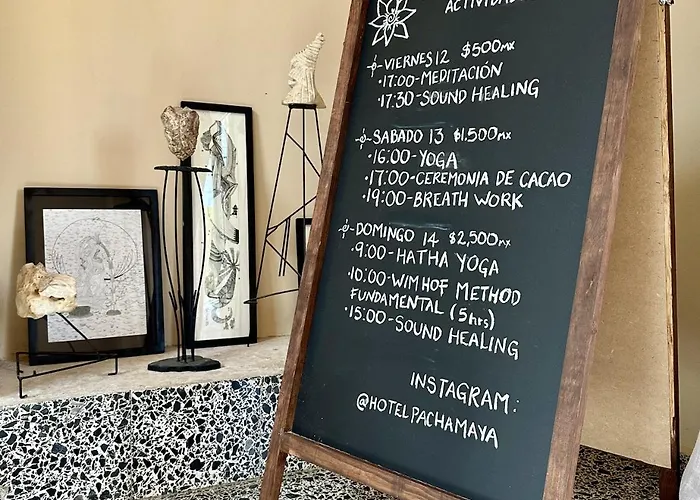 VIERNES 12 $500mx
·17:00-MEDITACIÓN
·17:30-SOUND HEALING
SABADO 13 $1.500mx
·16:00-YOGA
·17:00-CEREMONIA DE CACAO
·19:00-BREATH WORK
DOMINGO 14 $2,500mx
·9:00-HATHA YOGA
·10:00-WIM HOF METHOD
FUNDAMENTAL (5hrs)
·15:00-SOUND HEALING
INSTAGRAM:
@HOTELPACHAMAYA